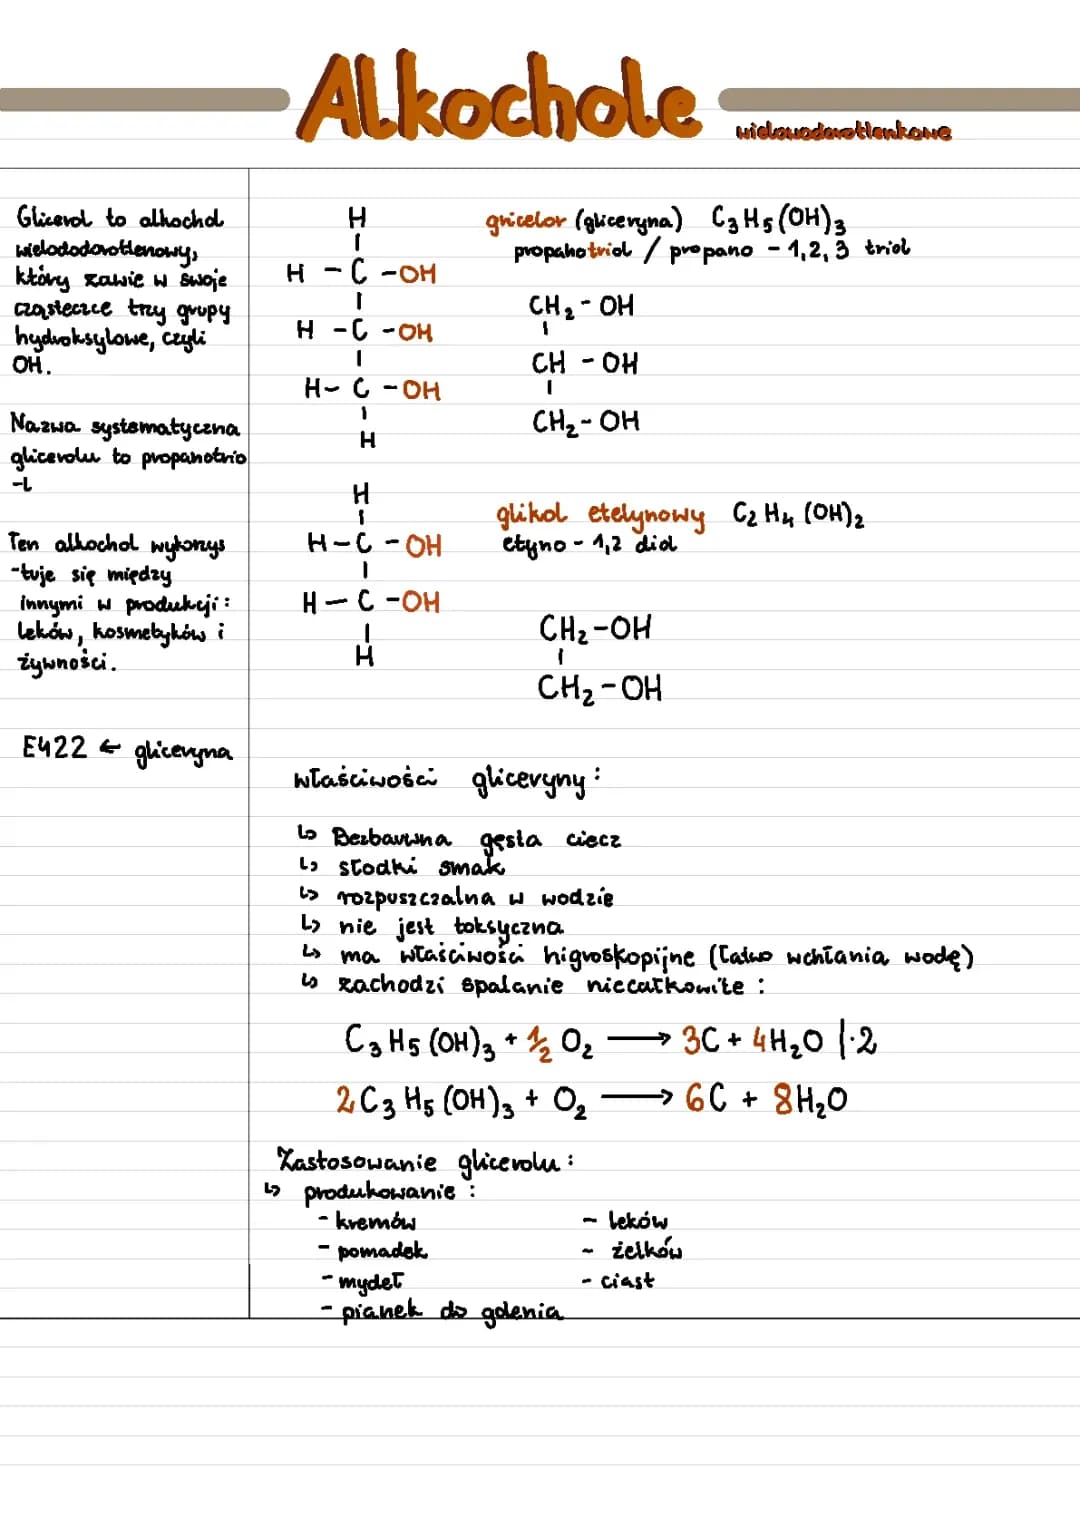 Alkochole
wielowodorotlenkowe
Glicerol to alkochol
wielododorotlenowy,
który zawie w swoje
cząsteczce trzy grupy
hydroksylowe, czyli
OH.
Nazwa systematyczna
glicerolu to propanotrio
-l
Ten alkochol wykorzys
-tuje się między
innymi w produkcji:
leków, kosmetyków i
żywności.
E422 ← gliceryna
H
H - C - OH
H - C - OH
H - C - OH
H
gnicelor (gliceryna) C₃H₅(OH)₃
propanotriol / propano - 1,2,3 triol
CH₂ - OH
CH - OH
CH₂ - OH
H
H - C - OH
H - C - OH
H
glikol etelynowy C₂H₄(OH)₂
etyno - 1,2 diol
CH₂ - OH
CH₂ - OH
właściwości gliceryny:
↳ Bezbarwna gęsta ciecz
↳ słodki smak
↳ rozpuszczalna w wodzie
↳ nie jest toksyczna
↳ ma właściwości higroskopijne (łatwo wchłania wodę)
↳ zachodzi spalanie niecałkowite:
C₃H₅(OH)₃ + ½ O₂ ⟶ 3C + 4H₂O |·2
2C₃H₅(OH)₃ + O₂ ⟶ 6C + 8H₂O
Zastosowanie glicerolu:
↳ produkowanie:
- kremów
- pomadek
- mydeł
- pianek do golenia
- leków
- żelków
- ciast